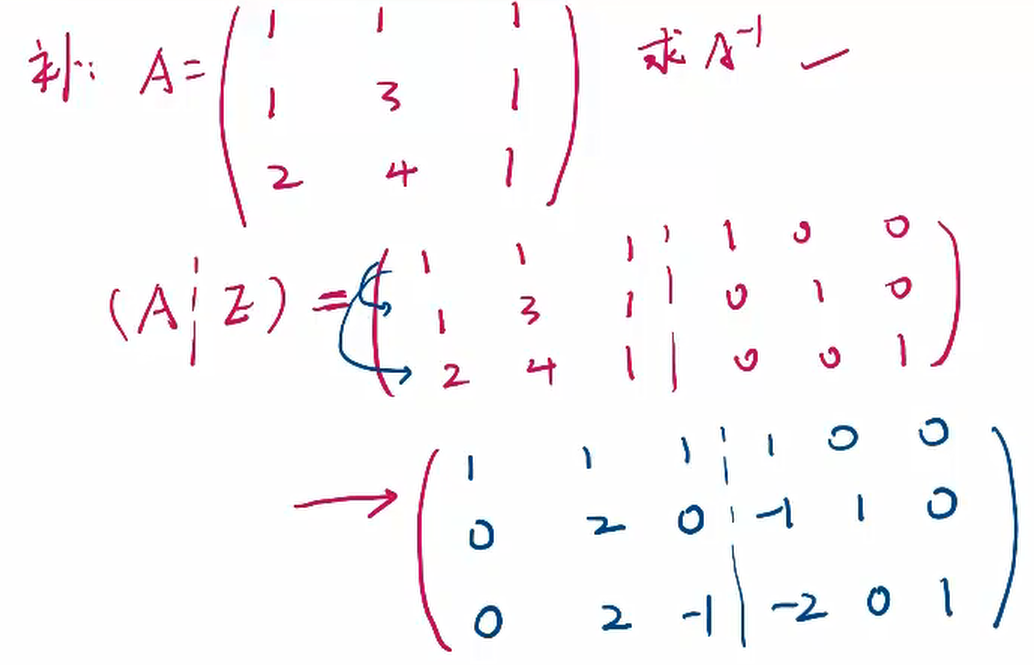 补: A= ( 1 1 1
1 3 1
2 4 1 ) 求 A⁻¹ ✓
(A ¦ E) = ( 1 1 1 ¦ 1 0 0
1 3 1 ¦ 0 1 0
2 4 1 ¦ 0 0 1 )
→ ( 1 1 1 ¦ 1 0 0
0 2 0 ¦ -1 1 0
0 2 -1 ¦ -2 0 1 )